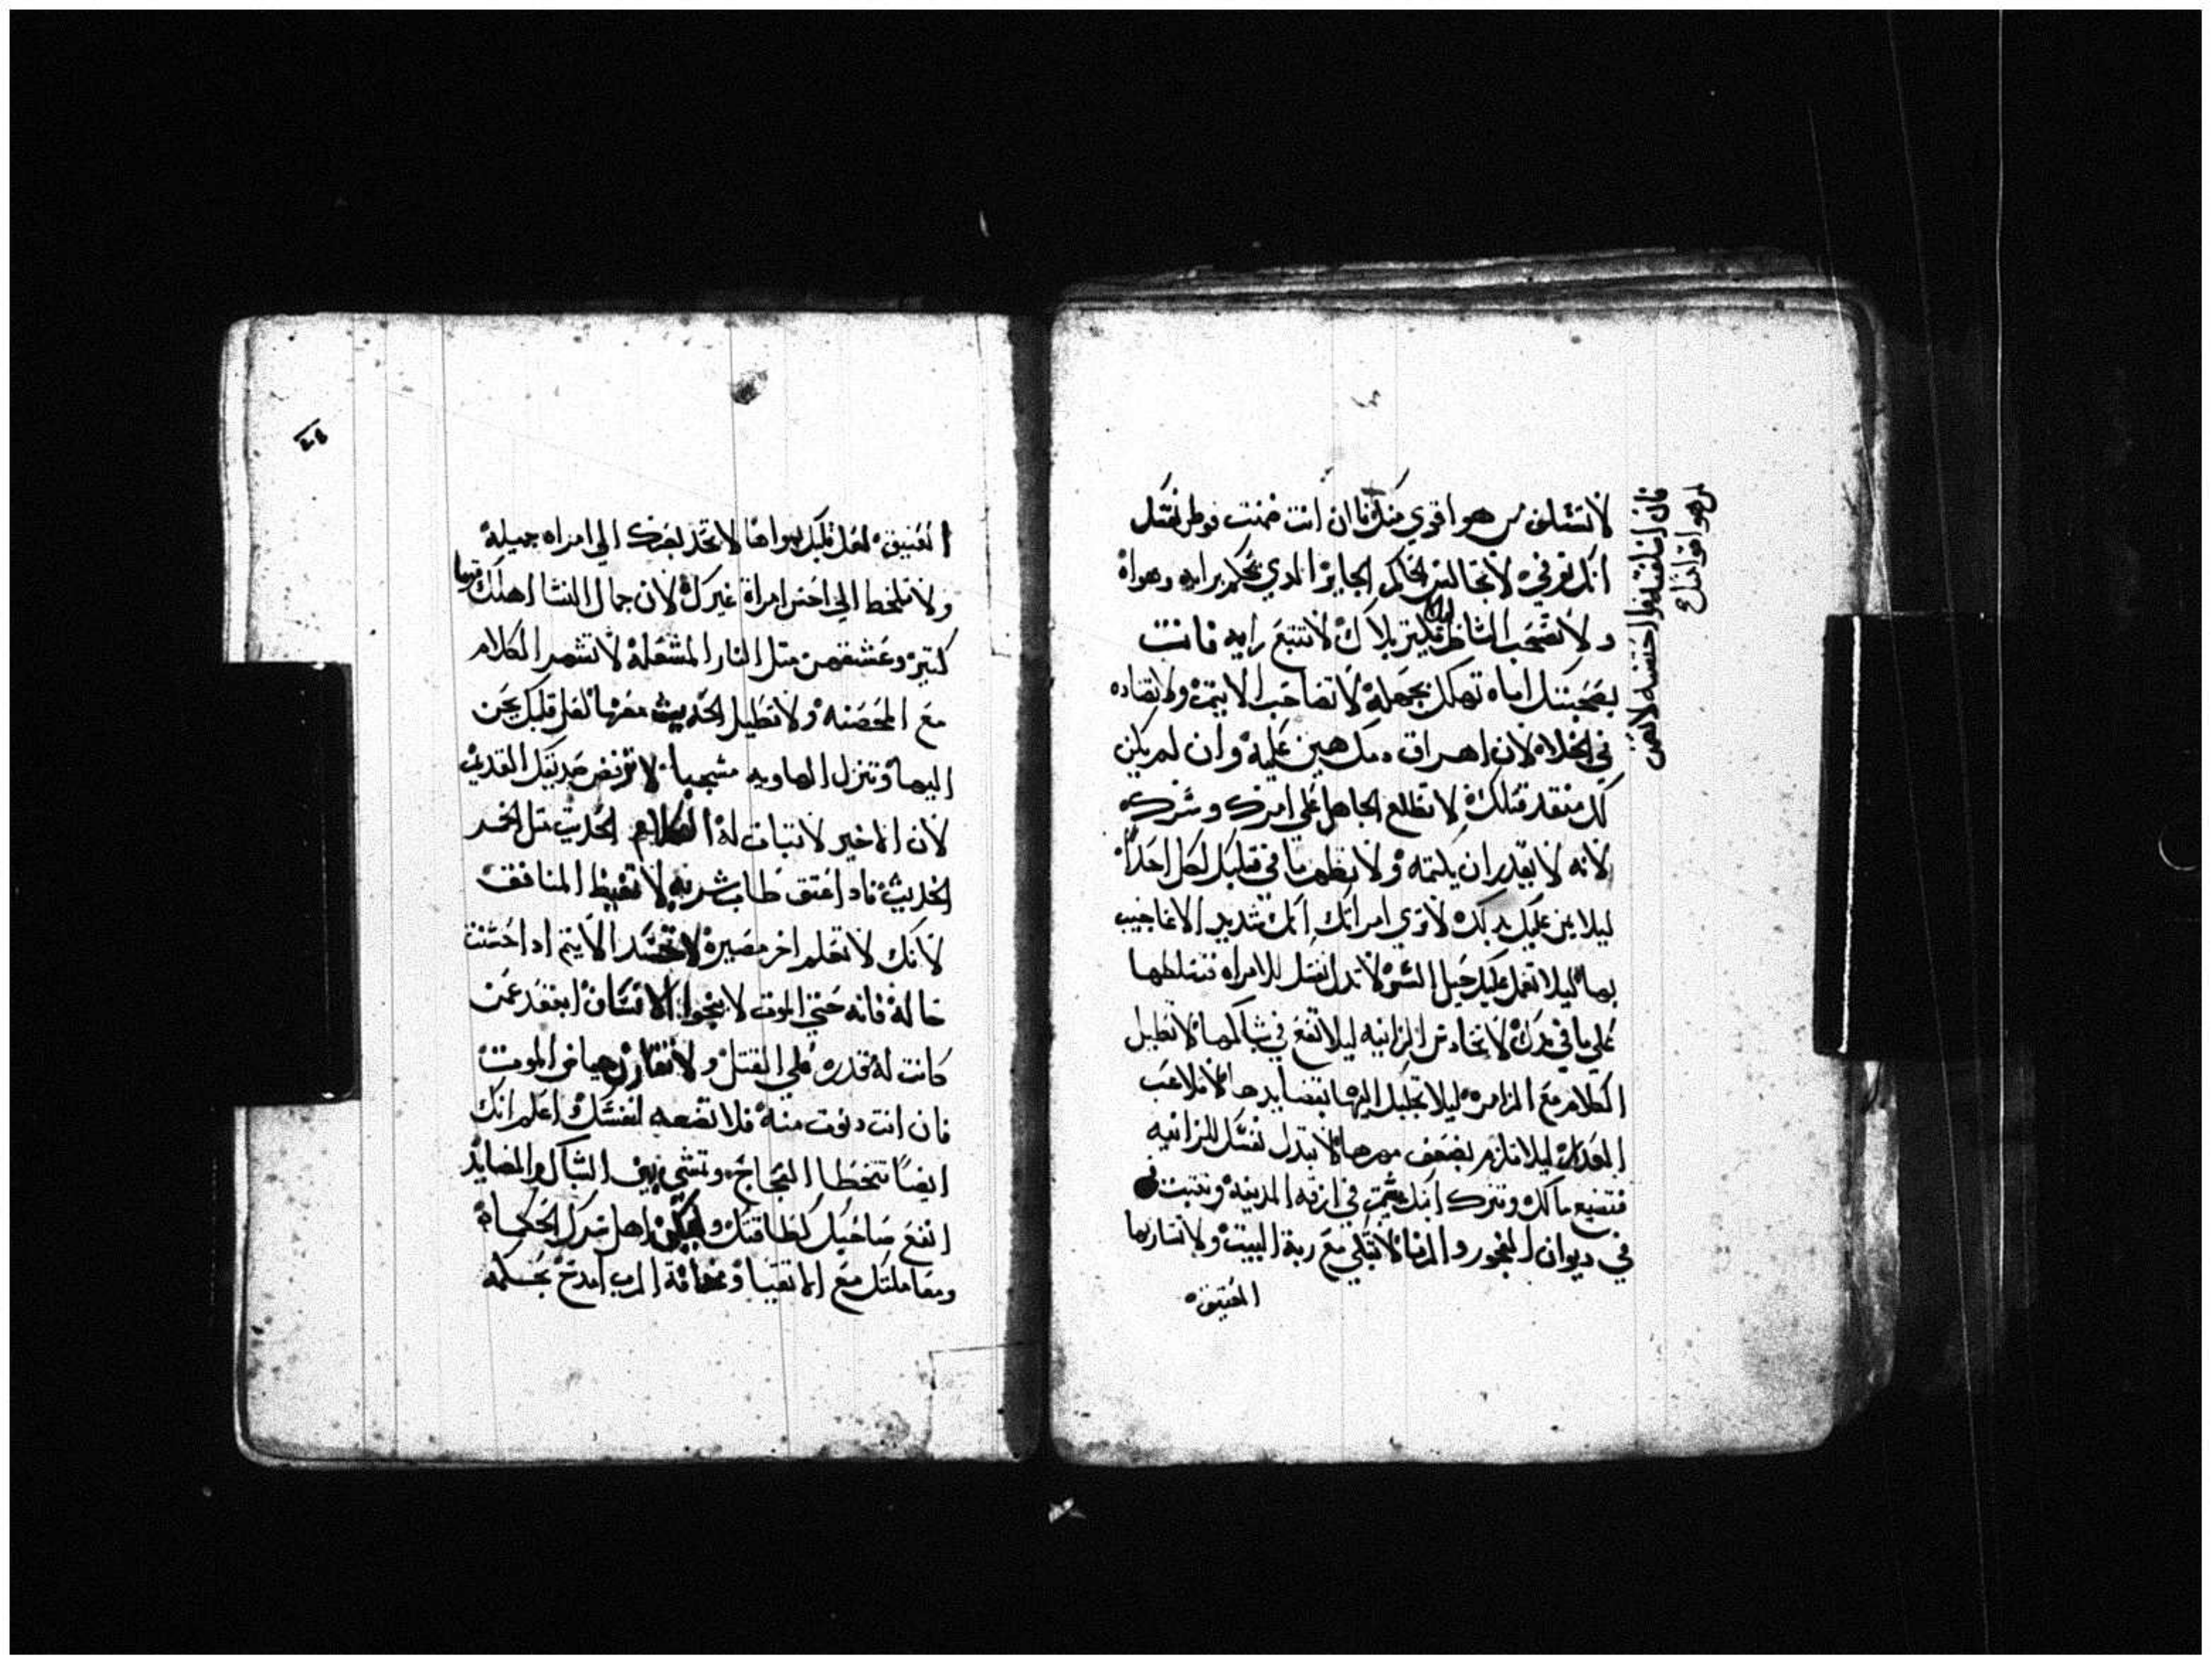 لاتتسلف من هو اقوي منك فان انت ضمنت فوطن نفسك
انك توفي لاتجالس الحاكم الجاير الدي يحكم برايه وهواه
ولاتصحب الشاطر ليلا بلاك لاتتبع رايه فانت
بصحبتك اياه تهلك بجهله لاتصاحب الاثيم ولاتضاده
في الخلاه لان اهراق دمك هين عليه وان لم يكن
لك منقد قتلك لاتطلع الجاهل علي امرك وسرك
لانه لايقدر ان يكتمه ولاتظهر ما في قلبك لكل احدا
ليلا عليك لاتري امراتك انك شديد الاعاجيب
بها ليلا تعمل عليك حيل الشر لاتدل نفسك للامراه فتسلطها
علي ما في يدك لاتحادث الزانيه ليلا تقع في شباكها لاتطيل
الكلام مع الزامره ليلا تجلبك اليها بمصايدها لاتلاعب
العدرا ليلا تلزم بضعف مهرها لاتبدل نفسك للزانيه
فتضيع مالك وتترك ابنك يشمت في ازقه المدينه وتثبت
في ديوان الفجور والزنا لاتتكي مع ربة البيت ولاتشاربها
العتيق
فان اسلفته فوا احسبه لاتضمن
لمن هو اقوا منك
٤٤
العتيق لعل قلبك يهواها لاتحد بصرك الي امراه جميله
ولاتلحظ الي احسن امراة غيرك لان جمال النسا اهلك قوما
كتير وعشقهن متل النار المشعله لاتشهر الكلام
مع المحصنه ولاتطيل الحديث معها لعل قلبك يحن
اليها وتنزل الهاويه مشجبا لاترفض صديقك القديم
لان الاخير لاتبات له الحديث متل الخمر
الحديث فاد اعتق طاب شربه لاتغبط المنافق
لانك لاتعلم اخر مصيره لاتحسد الاثيم ادا حسنت
حاله فانه حتي الموت لاينجوا الانسان ابعد عمن
كانت له قدره علي القتل ولاتقارن حياض الموت
فان انت دنوت منه فلاتضعه لنفسك اعلم انك
ايضا تتخطا الفجاج وتمشي بين الشباك والمصايد
انفع صاحبك كطاقتك وليكن اهل سرك الحكماه
ومعاملتك مع الاتقيا ومخافة الرب امدح بحكمه